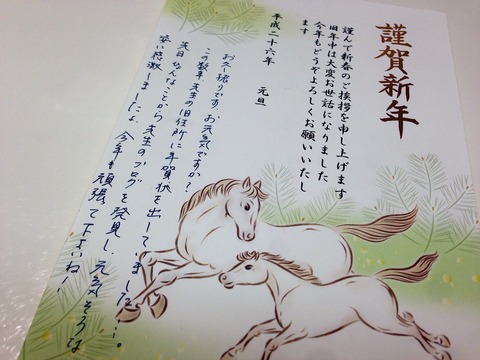 謹賀新年
謹んで新春のご挨拶を申し上げます
旧年中は大変お世話になりました
今年もどうぞよろしくお願いいたし
ます
平成二十六年 元旦
お久し振りです。お元気ですか?
この数年、先生の旧住所に年賀状を出していました…。
先日、ひょんなことから先生のブログを発見し、元気そうな
姿に感激しましたよ。今年も頑張って下さいね!